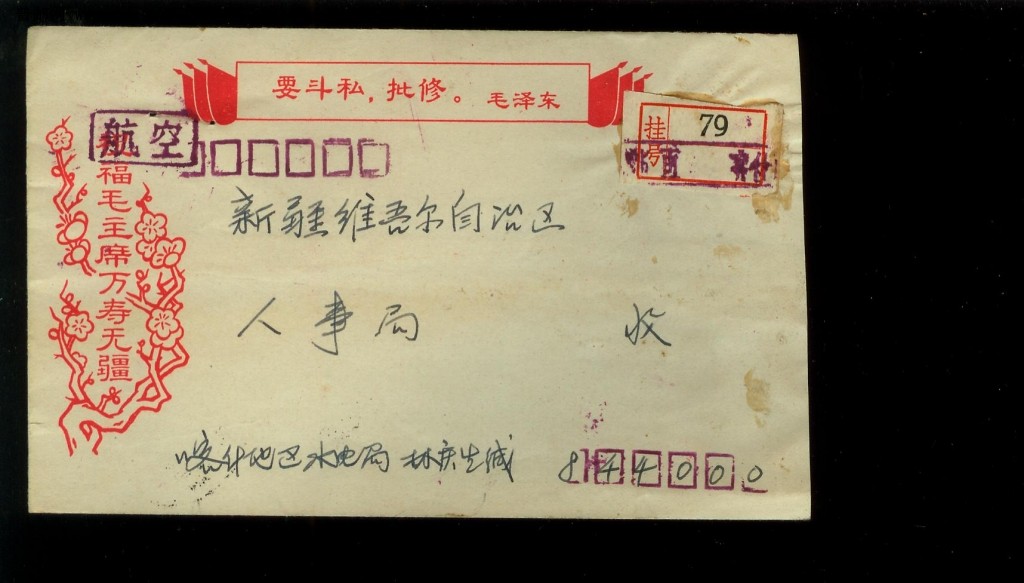 要斗私，批修。 毛泽东
航空
挂号 79
福毛主席万寿无疆
新疆维吾尔自治区
人事局 收
喀什地区水电局 林庆生缄 844000